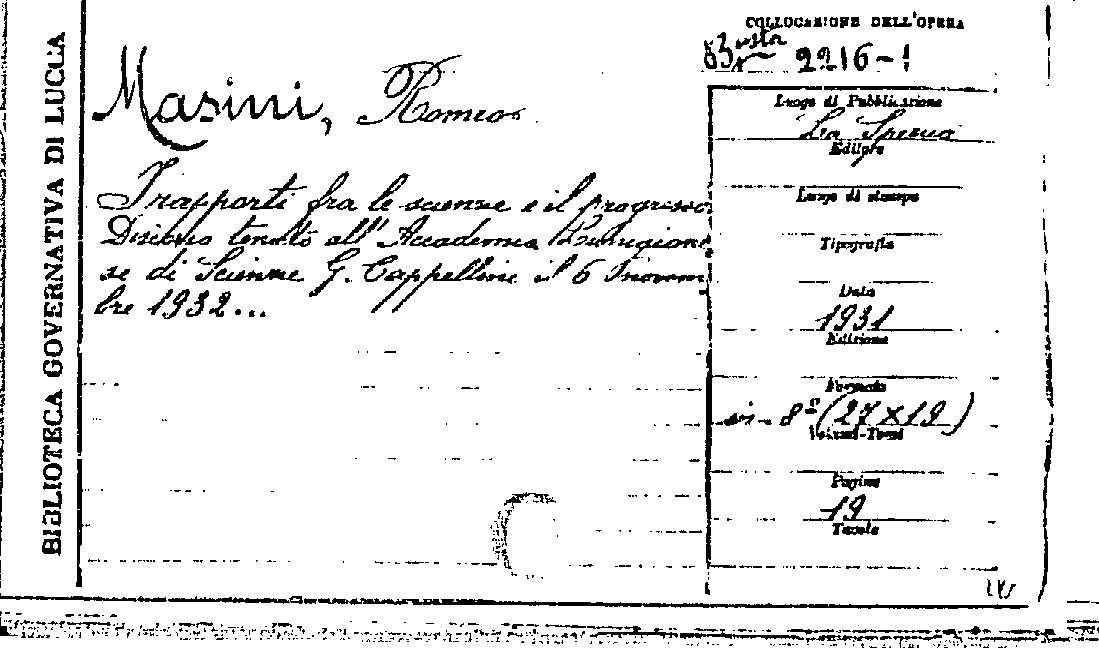 BIBLIOTECA GOVERNATIVA DI LUCCA
COLLOCAZIONE DELL'OPERA
Busta 2216-1
Masini, Romeo
I rapporti fra le scienze e il progresso
Discorso tenuto all'Accademia Lunigiane
se di Scienze G. Cappellini il 6 novem
bre 1932...
Luogo di Pubblicazione
La Spezia
Editore
Luogo di stampa
Tipografia
Data
1931
Edizione
Formato
in-8º (27×19)
Volumi-Tomi
Pagine
19
Tavole